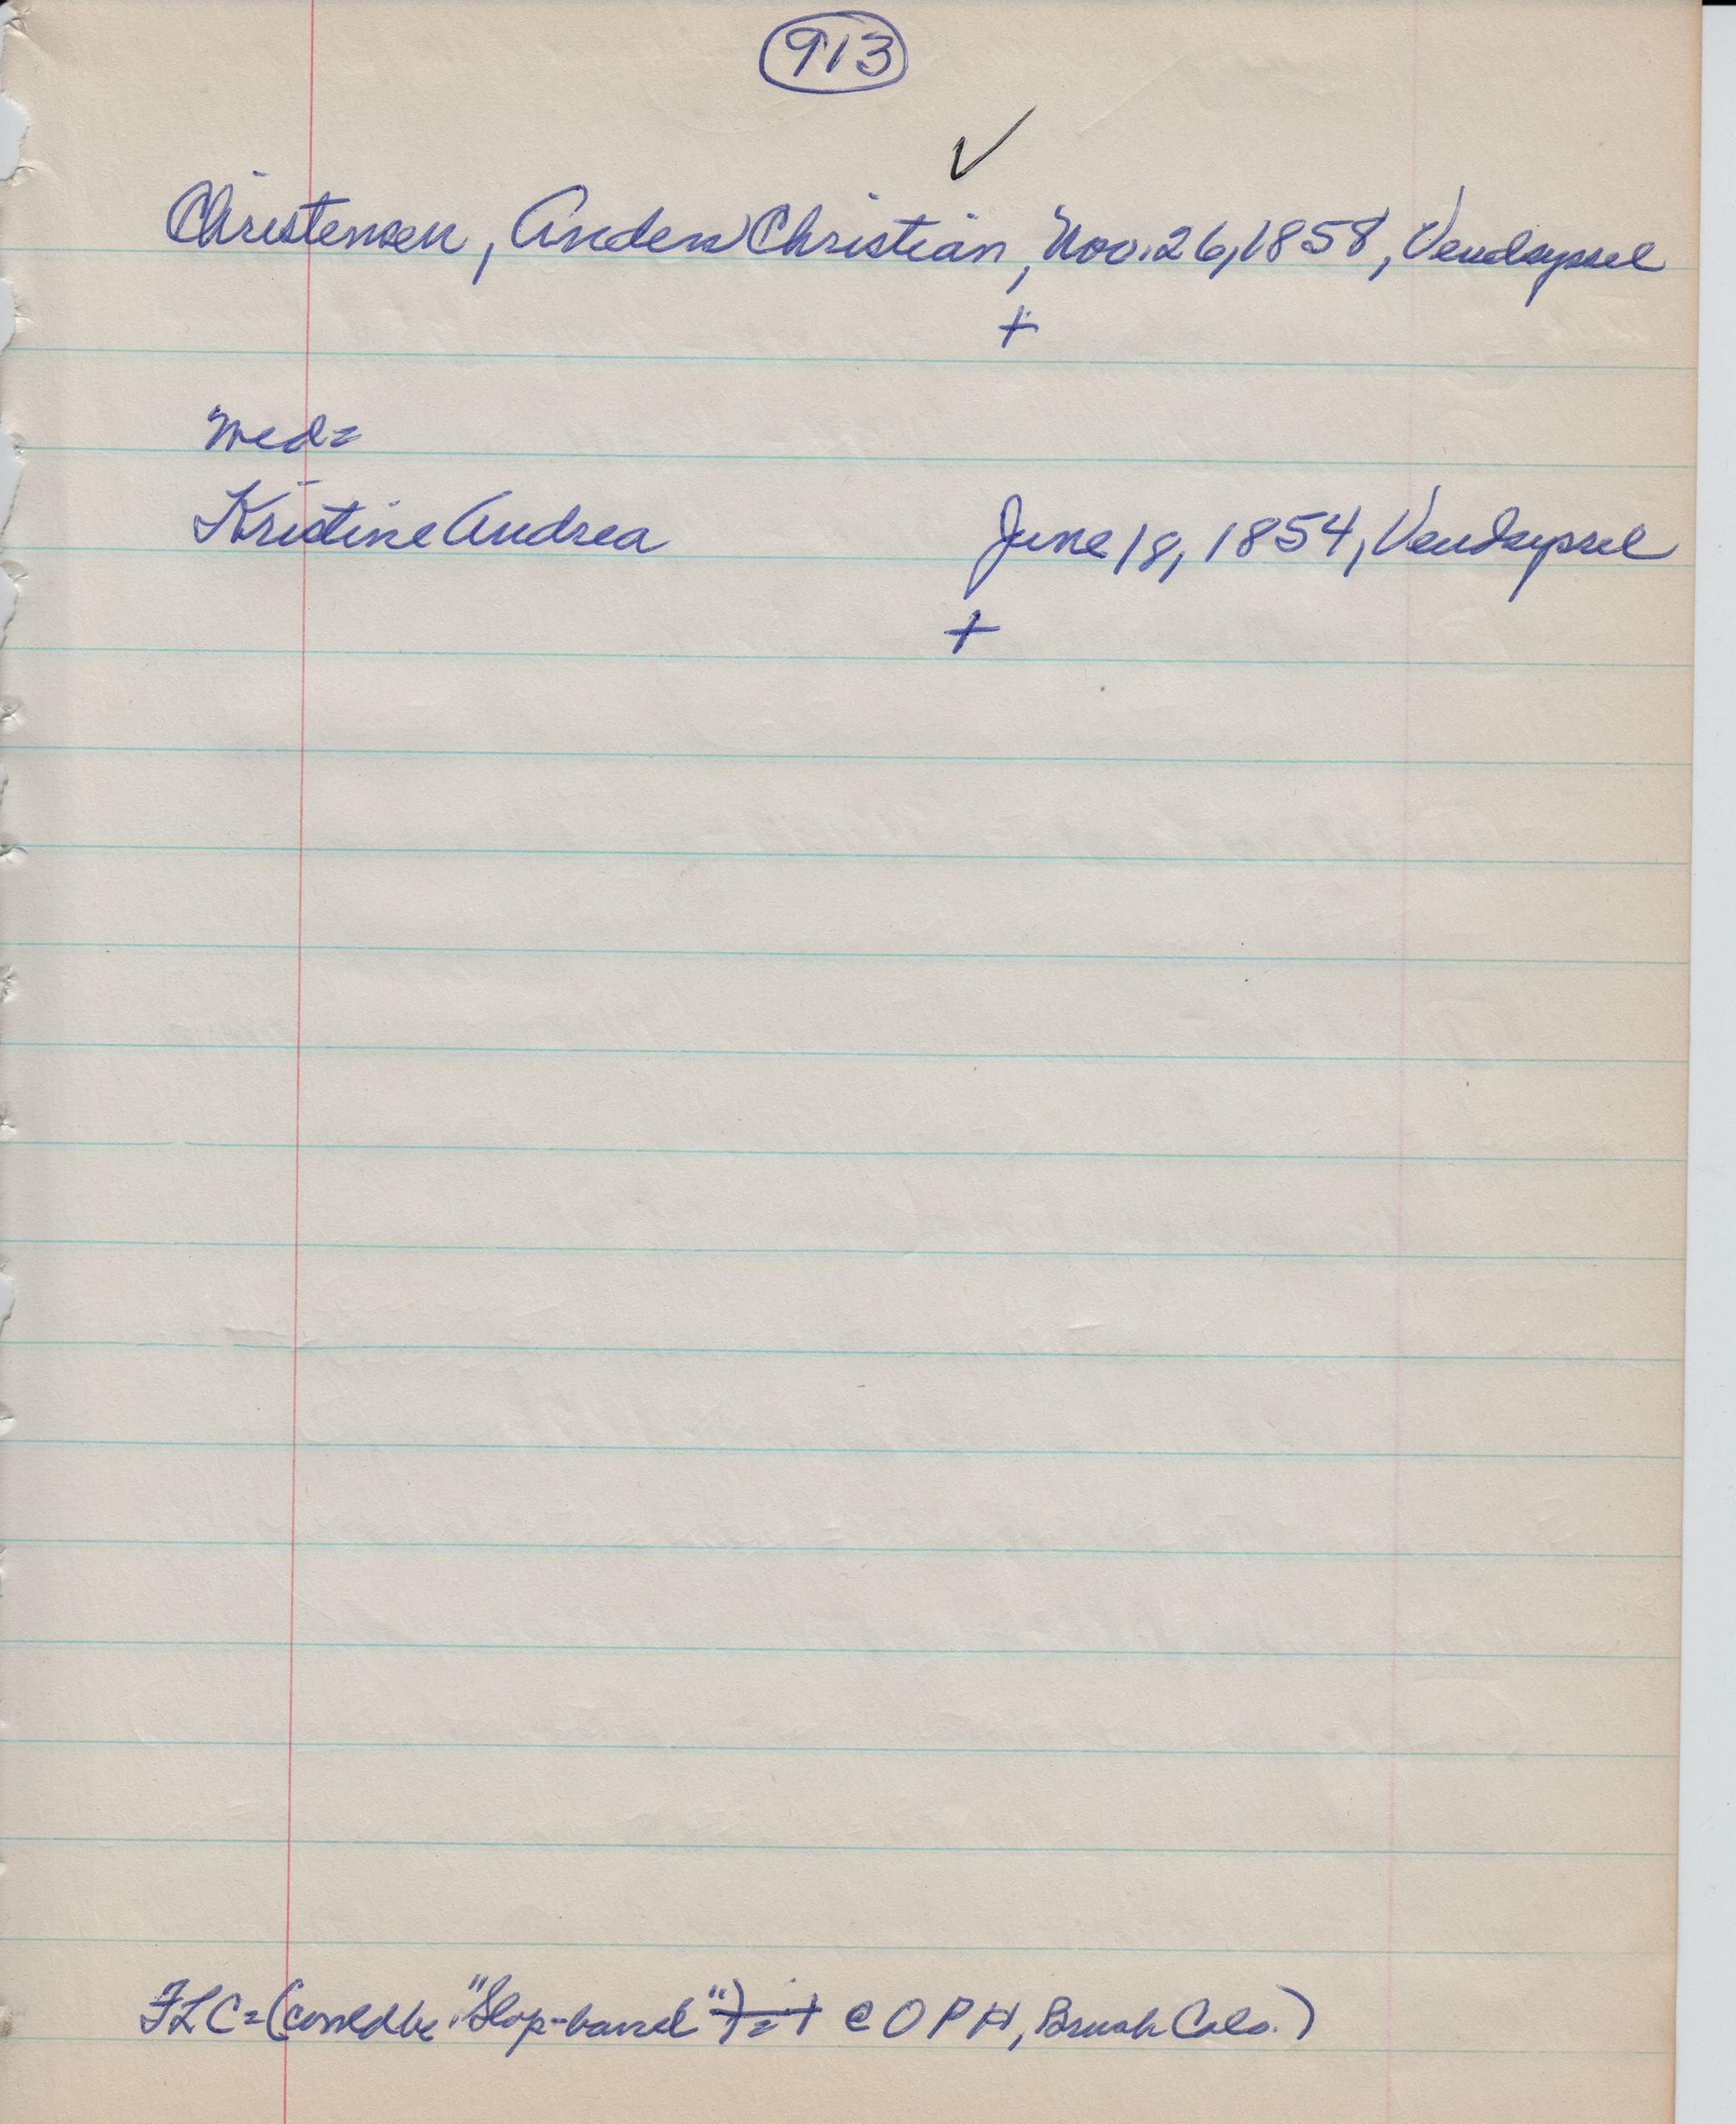 913
✓
Christensen, Anders Christian, Nov. 26, 1858, Vendsyssel
+
med=
Kristine Andrea June 18, 1854, Vendsyssel
+
FLC=(could be "Slop-barrel") @ O P H, Brush Colo.)